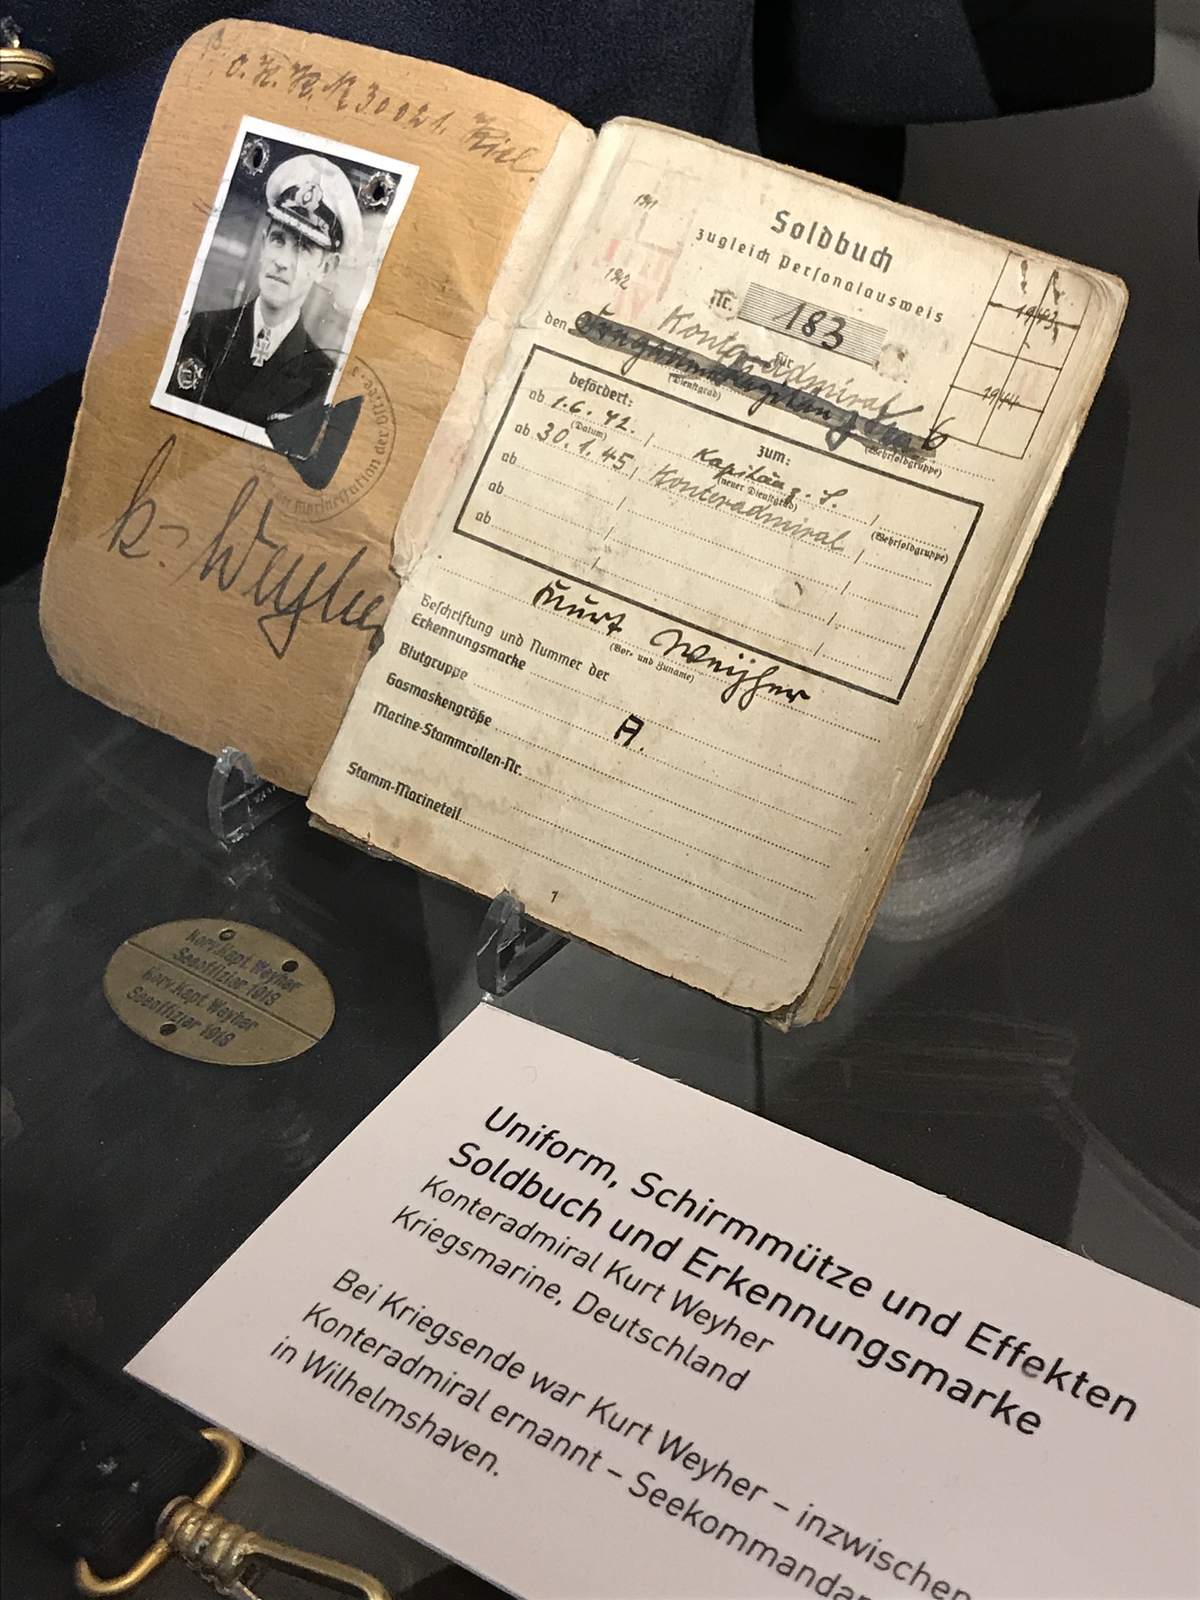 O.K.M. M 30021. Kiel.
Marinestation der Ostsee
K. Weyher
1941
1942
1943
1944
Soldbuch
zugleich Personalausweis
Nr. 183
für
den Konteradmiral
(Dienstgrad)
(Wehrsoldgruppe)
6
befördert:
ab 1.6.42. zum: Kapitän z. S.
(Datum) (neuer Dienstgrad) (Wehrsoldgruppe)
ab 30.1.45 Konteradmiral
ab
ab
ab
Kurt Weyher
(Vor- und Zuname)
Beschriftung und Nummer der
Erkennungsmarke
Blutgruppe A.
Gasmaskengröße
Marine-Stammrollen-Nr.
Stamm-Marineteil
1
Korv.Kapt. Weyher
Seeoffizier 1918
Korv.Kapt. Weyher
Seeoffizier 1918
Uniform, Schirmmütze und Effekten
Soldbuch und Erkennungsmarke
Konteradmiral Kurt Weyher
Kriegsmarine, Deutschland
Bei Kriegsende war Kurt Weyher – inzwischen
Konteradmiral ernannt – Seekommandan
in Wilhelmshaven.